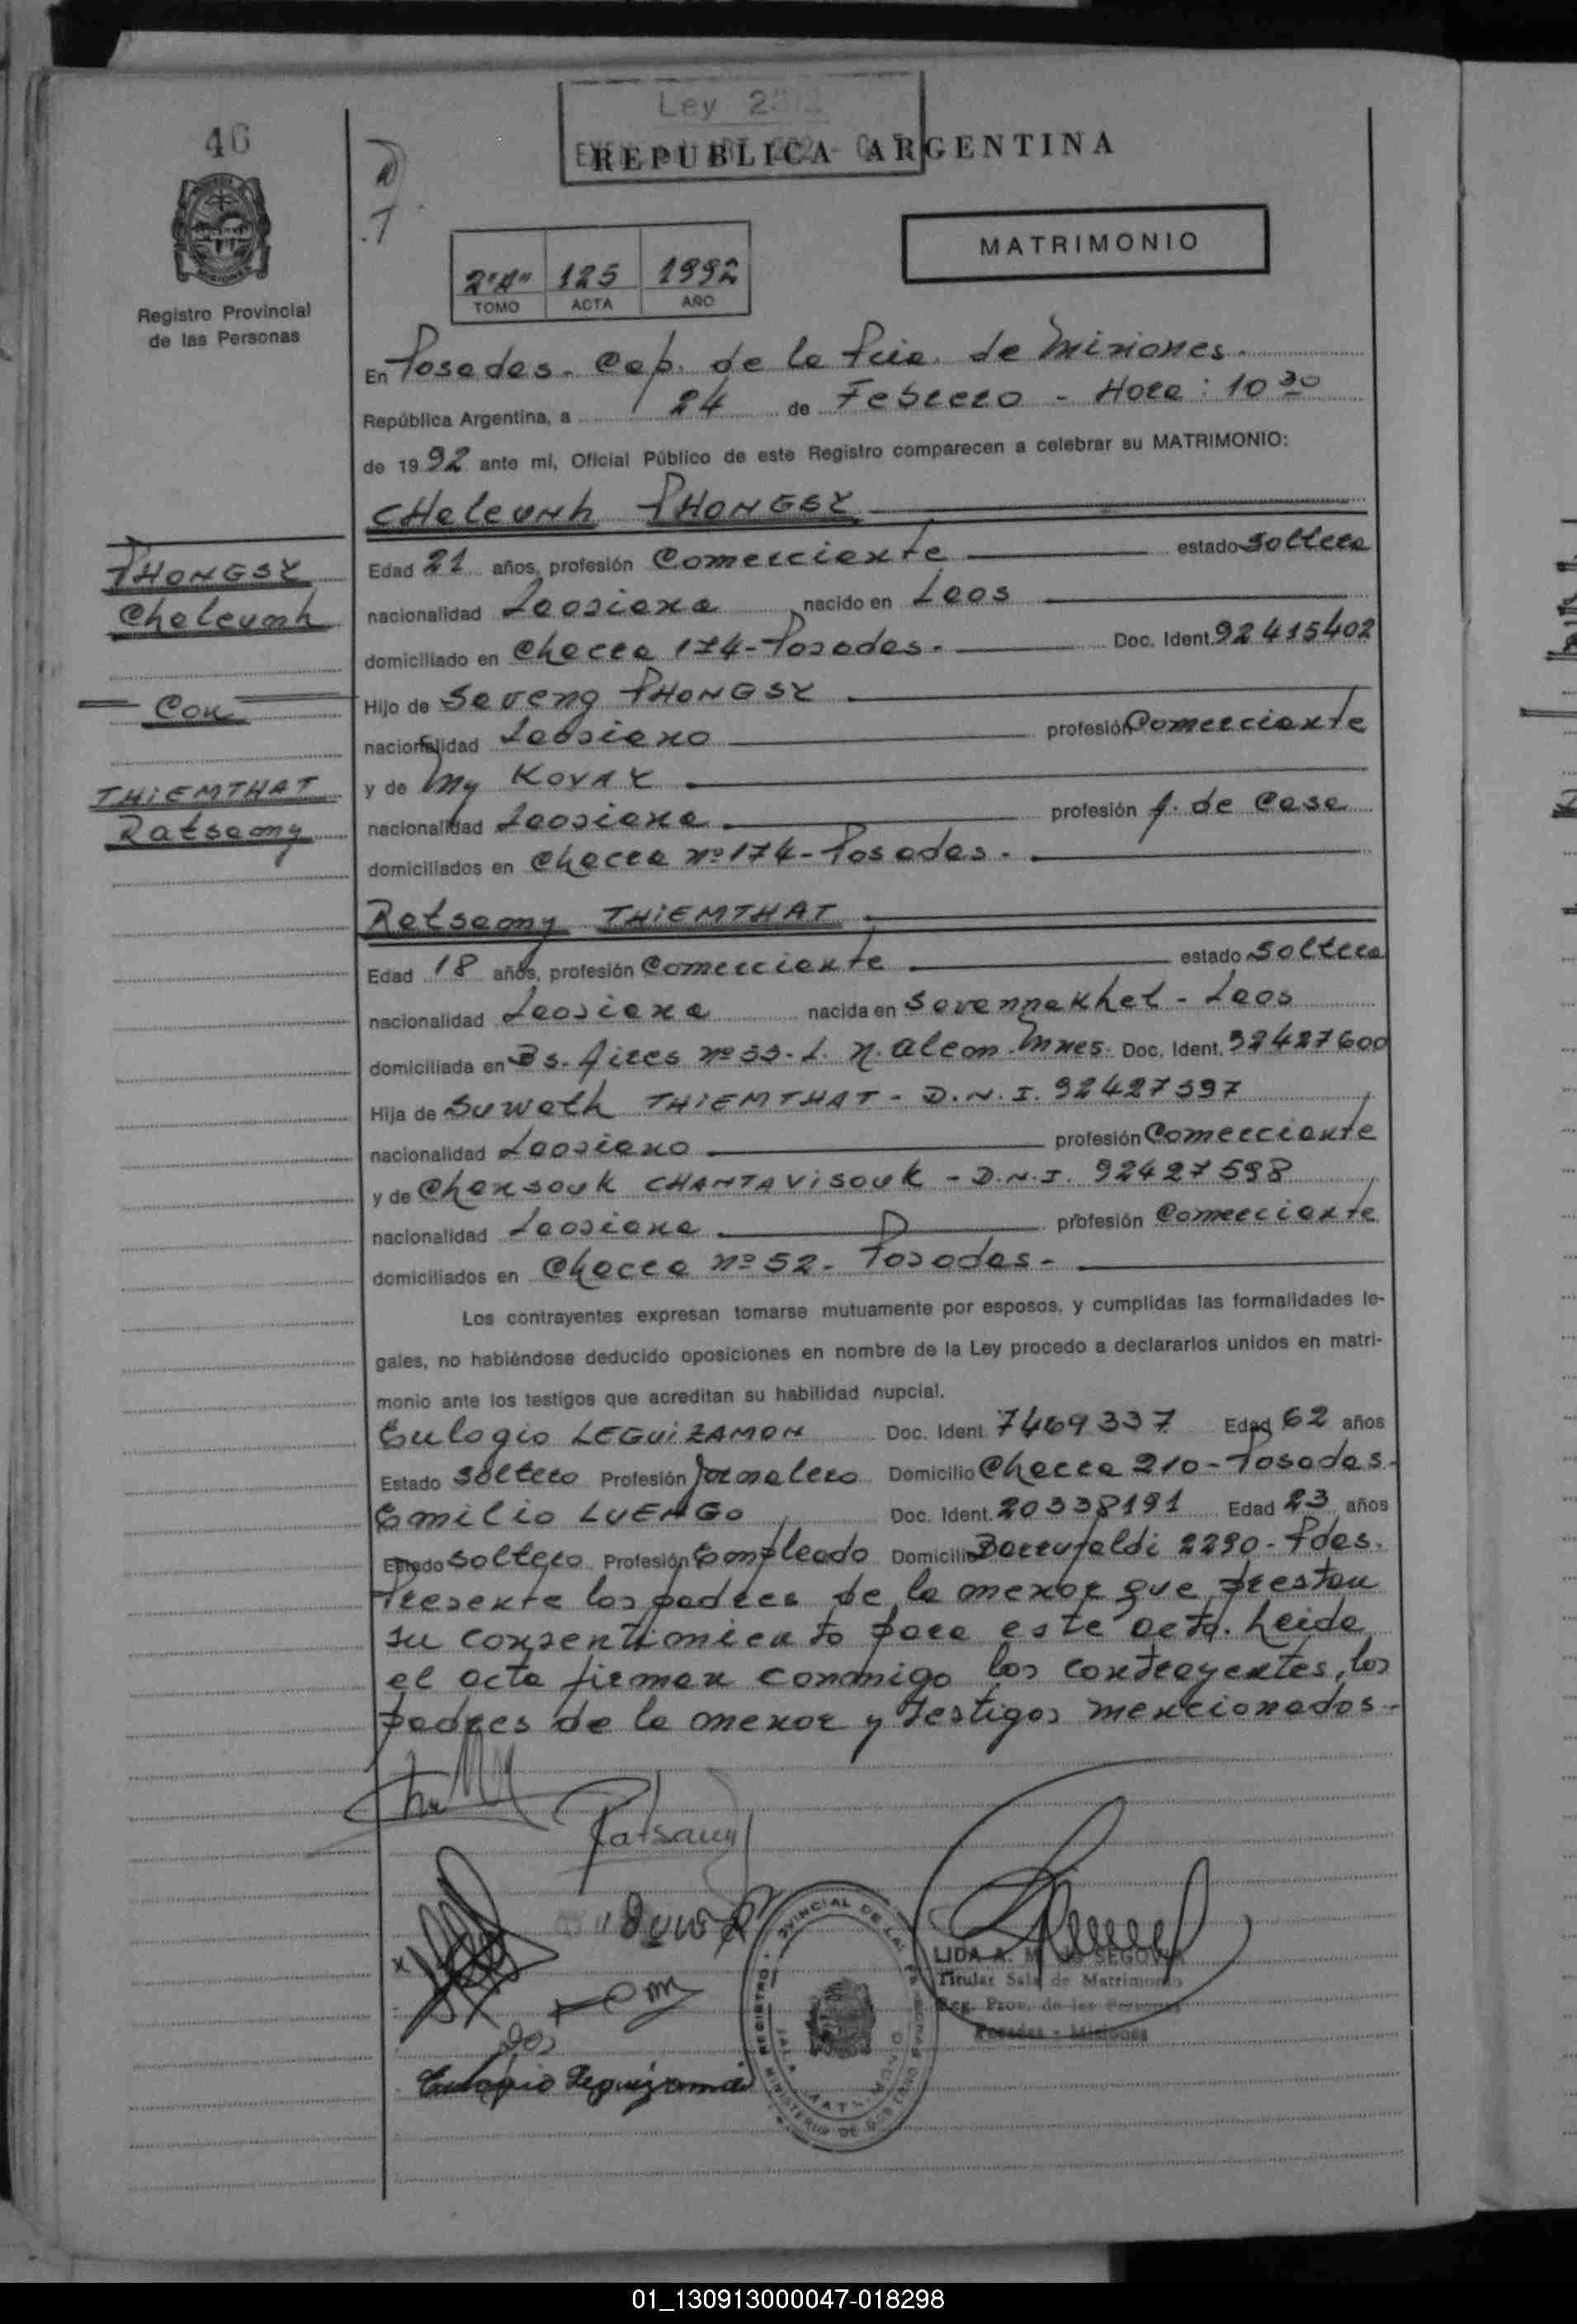 46
Ley 2
REPUBLICA ARGENTINA
MATRIMONIO
2º"A" 125 1992
TOMO ACTA AÑO
Registro Provincial
de las Personas
En Posadas - Cap. de la Pcia. de Misiones.
República Argentina, a 24 de Febrero - Hora: 10 30
de 1992 ante mí, Oficial Público de este Registro comparecen a celebrar su MATRIMONIO:
CHaleunh PHONGSY
PHONGSY
Chaleunh
Con
THIEMTHAT
Ratsamy
Edad 21 años, profesión Comerciante estado soltero
nacionalidad Laosiana nacido en Laos
domiciliado en Chacra 174 - Posadas. Doc. Ident. 92415402
Hijo de Saveng PHONGSY
nacionalidad Laosiano profesión Comerciante
y de My KOVAY
nacionalidad Laosiana profesión A. de Casa
domiciliados en Chacra nº 174 - Posadas.
Ratsamy THIEMTHAT
Edad 18 años, profesión Comerciante estado soltera
nacionalidad Laosiana nacida en Savannakhet - Laos
domiciliada en Bs. Aires nº 33 - L. N. Alem. Mnes. Doc. Ident. 92427600
Hija de Suwath THIEMTHAT - D.N.I. 92427597
nacionalidad Laosiano profesión Comerciante
y de Chansouk CHANTAVISOUK - D.N.I. 92427598
nacionalidad Laosiana profesión Comerciante
domiciliados en Chacra nº 52 - Posadas -
Los contrayentes expresan tomarse mutuamente por esposos, y cumplidas las formalidades le-
gales, no habiéndose deducido oposiciones en nombre de la Ley procedo a declararlos unidos en matri-
monio ante los testigos que acreditan su habilidad nupcial.
Eulogio LEGUIZAMON Doc. Ident. 7469337 Edad 62 años
Estado soltero Profesión Jornalero Domicilio Chacra 210 - Posadas.
Emilio LUENGO Doc. Ident. 20338191 Edad 23 años
Estado soltero Profesión Empleado Domicilio Barrufaldi 2290 - Pdas.
Presente los padres de la menor que prestan
su consentimiento para este acto. Leida
el acta firman conmigo los contrayentes, los
padres de la menor y testigos mencionados.-
Ratsamy
Eulogio Leguizamon
REGISTRO PROVINCIAL DE LAS PERSONAS
MINISTERIO DE GOBIERNO
SALA MATRIMONIO
LIDA A. M. de SEGOVIA
Titular Sala de Matrimonio
Reg. Prov. de las Personas
Posadas - Misiones
01_130913000047-018298